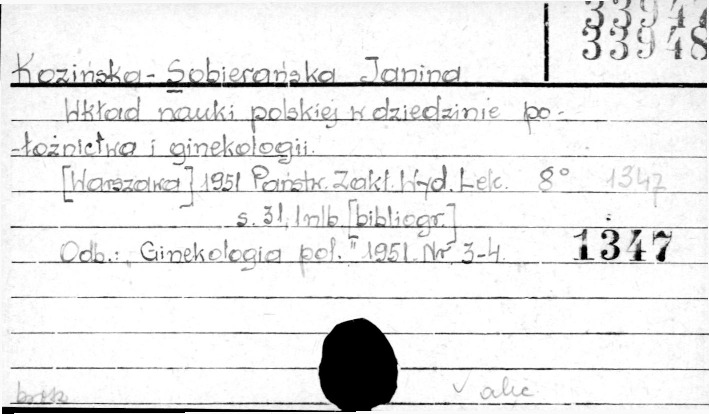 33947
33948
Kozińska-Sobierańska Janina
Wkład nauki polskiej w dziedzinie po-
-łożnictwa i ginekologii.
[Warszawa] 1951 Państw. Zakł. Wyd. Lek. 8° 1347
s. 31, 1 nlb. [bibliogr.]
Odb.: „Ginekologia pol." 1951. Nr 3-4. 1347